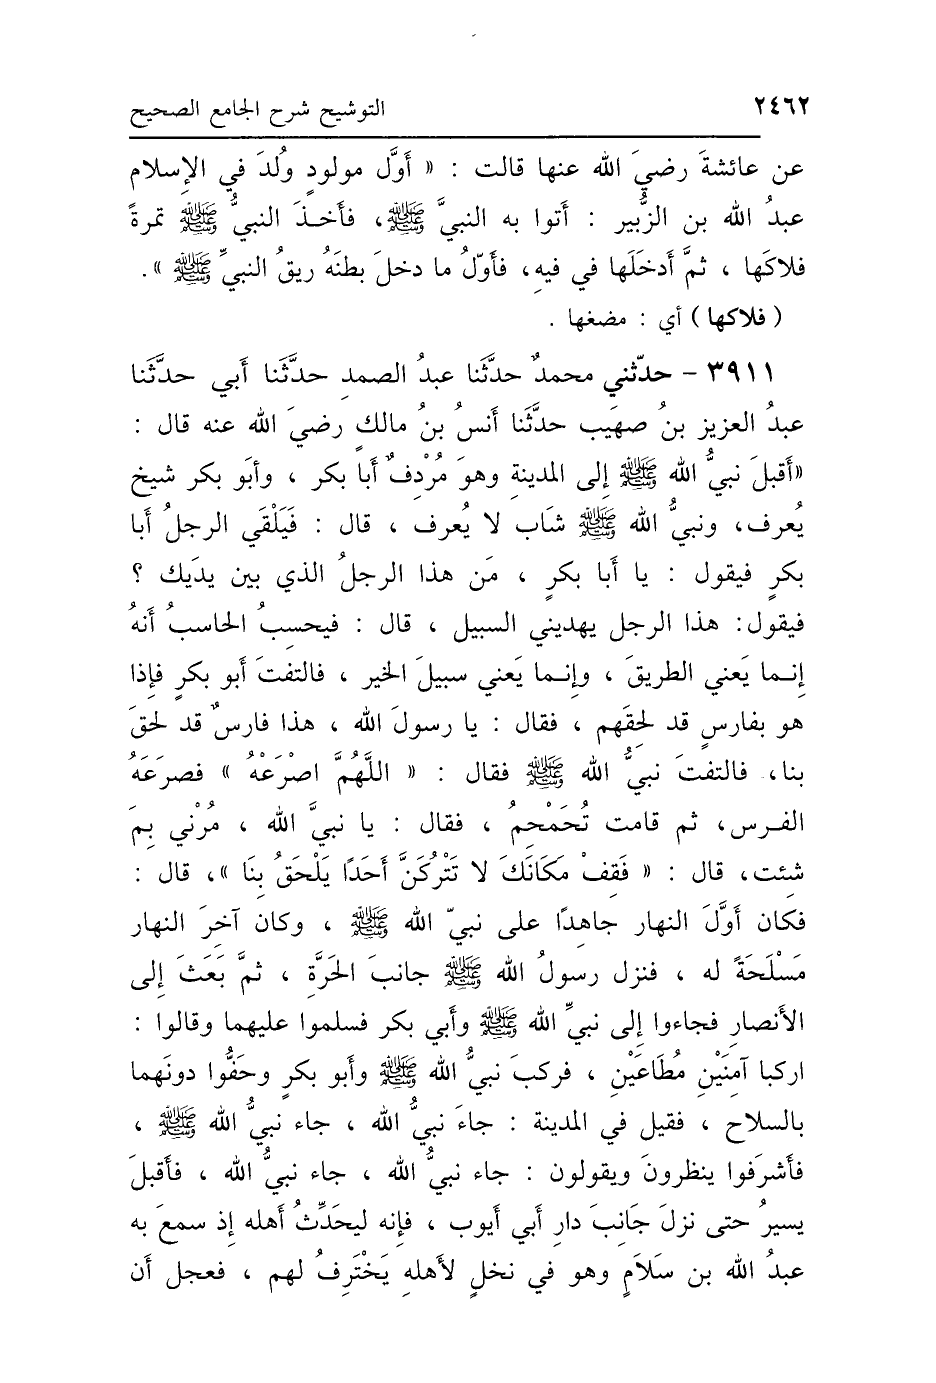 ٢٤٦٢ التوشيح شرح الجامع الصحيح
عن عائشةَ رضيَ الله عنها قالت : « أوَّل مولودٍ وُلدَ في الإسلام
عبدُ الله بن الزُّبير : أتوا به النبيَّ ﷺ، فأخـذَ النبيُّ ﷺ تمرةً
فلاكَها ، ثمَّ أدخلَها في فيهِ، فأوّلُ ما دخلَ بطنَهُ ريقُ النبيِّ ﷺ ».
( فلاكها ) أي : مضغها .
٣٩١١ - حدّثني محمدٌ حدَّثَنا عبدُ الصمدِ حدَّثَنا أبي حدَّثَنا
عبدُ العزيز بنُ صهَيب حدَّثَنا أنسُ بنُ مالكٍ رضيَ الله عنه قال :
«أقبلَ نبيُّ الله ﷺ إلى المدينةِ وهوَ مُرْدِفٌ أبا بكر ، وأبَو بكر شيخ
يُعرف، ونبيُّ الله ﷺ شَاب لا يُعرف ، قال : فَيَلْقَي الرجلُ أبا
بكرٍ فيقول : يا أبا بكرٍ ، مَن هذا الرجلُ الذي بين يديَك ؟
فيقول: هذا الرجل يهديني السبيل ، قال : فيحسِبُ الحاسبُ أنهُ
إنـما يَعني الطريقَ ، وإنـما يَعني سبيلَ الخير ، فالتفتَ أبو بكرٍ فإذا
هو بفارسٍ قد لحِقَهم ، فقال : يا رسولَ الله ، هذا فارسٌ قد لحقَ
بنا، فالتفتَ نبيُّ الله ﷺ فقال : « اللَّهُمَّ اصْرَعْهُ » فصرَعَهُ
الفـرس، ثم قامت تُحَمْحِمُ ، فقال : يا نبيَّ الله ، مُرْني بِمَ
شئت، قال : « فَقِفْ مَكَانَكَ لا تَتْرُكَنَّ أَحَدًا يَلْحَقُ بِنَا »، قال :
فكان أوَّلَ النهار جاهدًا على نبيّ الله ﷺ ، وكان آخرَ النهار
مَسْلَحَةً له ، فنزل رسولُ الله ﷺ جانبَ الحَرَّةِ ، ثمَّ بَعَثَ إلى
الأنصارِ فجاءوا إلى نبيِّ الله ﷺ وأبي بكر فسلموا عليهما وقالوا :
اركبا آمنَيْنِ مُطَاعَيْنِ ، فركبَ نبيُّ الله ﷺ وأبو بكرٍ وحَفُّوا دونَهما
بالسلاح ، فقيل في المدينة : جاءَ نبيُّ الله ، جاء نبيُّ الله ﷺ ،
فأشرَفوا ينظرونَ ويقولون : جاء نبيُّ الله ، جاء نبيُّ الله ، فأقبلَ
يسيرُ حتى نزلَ جَانِبَ دارِ أبي أيوب ، فإنه ليحَدِّثُ أهله إذ سمعَ به
عبدُ الله بن سَلاَمٍ وهو في نخلٍ لأهلهِ يَخْتَرِفُ لهم ، فعجل أن